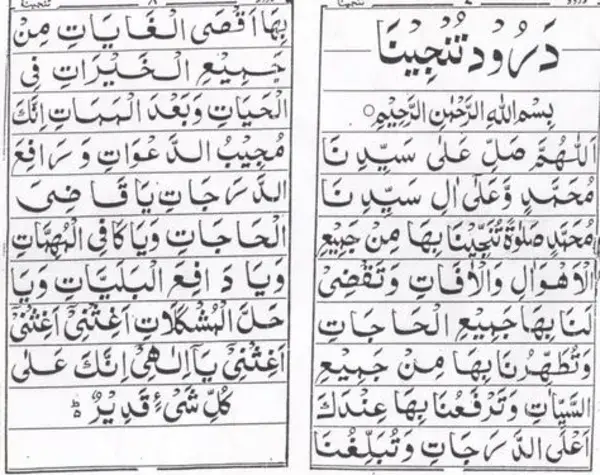 دَرُوْد تُنْجِيْنَا
بِسْمِ اللهِ الرَّحْمٰنِ الرَّحِيْمِ ○
اَللّٰهُمَّ صَلِّ عَلٰى سَيِّدِنَا
مُحَمَّدٍ وَّعَلٰى اٰلِ سَيِّدِنَا
مُحَمَّدٍ صَلٰوةً تُنَجِّيْنَا بِهَا مِنْ جَمِيْعِ
الْاَهْوَالِ وَالْاٰفَاتِ وَتَقْضِىْ
لَنَا بِهَا جَمِيْعَ الْحَاجَاتِ
وَتُطَهِّرُنَا بِهَا مِنْ جَمِيْعِ
السَّيِّاٰتِ وَتَرْفَعُنَا بِهَا عِنْدَكَ
اَعْلَى الدَّرَجَاتِ وَتُبَلِّغُنَا
بِهَا اَقْصَى الْغَايَاتِ مِنْ
جَمِيْعِ الْخَيْرَاتِ فِى
الْحَيَاتِ وَبَعْدَ الْمَمَاتِ اِنَّكَ
مُجِيْبُ الدَّعْوَاتِ وَرَافِعُ
الدَّرَجَاتِ يَا قَاضِىَ
الْحَاجَاتِ وَيَا كَافِىَ الْمُهِمَّاتِ
وَيَا دَافِعَ الْبَلِيَّاتِ وَيَا
حَلَّ الْمُشْكِلَاتِ اَغِثْنِىْ اَغِثْنِىْ
اَغِثْنِىْ يَآ اِلٰهِىْ اِنَّكَ عَلٰى
كُلِّ شَىْءٍ قَدِيْرٌ ط